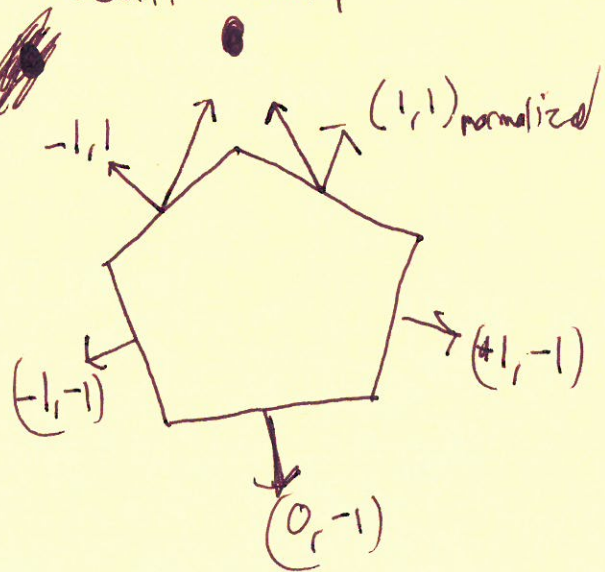 (1,1) normalized
-1,1
(-1,-1)
(+1,-1)
(0,-1)